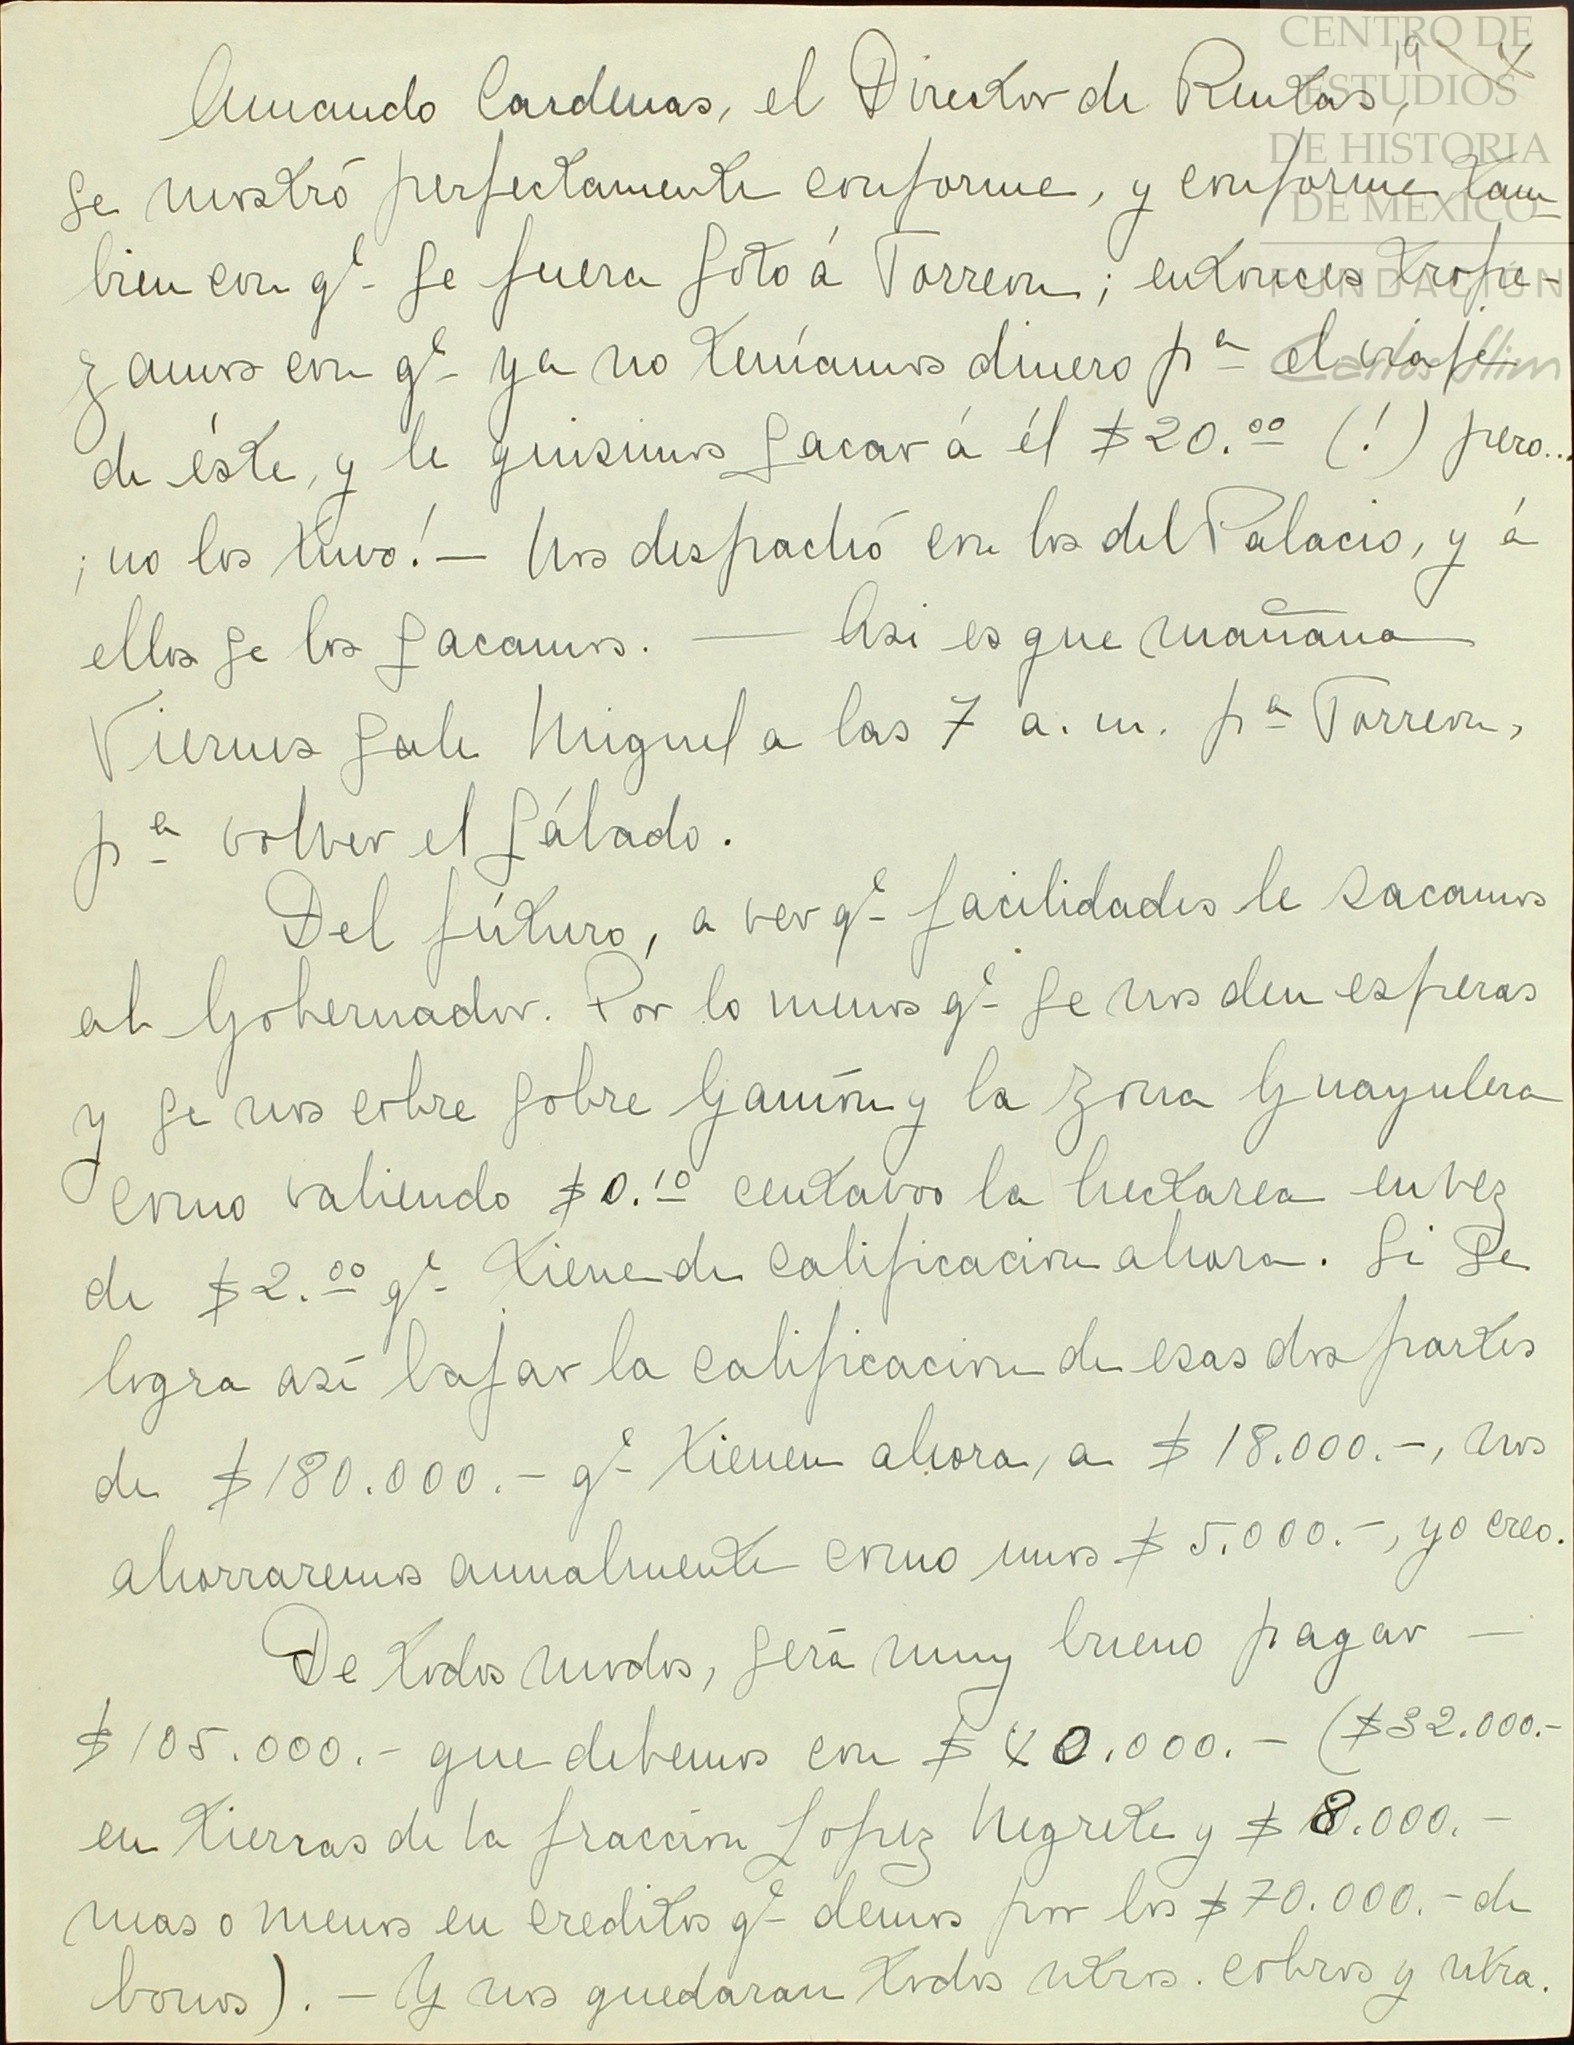 CENTRO DE
ESTUDIOS
DE HISTORIA
DE MÉXICO
FUNDACIÓN
Carlos Slim
19
Amando Cardenas, el Director de Rentas,
se mostró perfectamente conforme, y conforme tam
bien con qe se fuera Soto á Torreon; entonces trope-
zamos con qe ya no teníamos dinero pa el viaje
de éste, y le quisimos sacar á él $20.00 (!) pero...
¡no los tuvo!— Nos despachó con los del Palacio, y á
ellos se los sacamos. — Asi es que mañana
Viernes sale Miguel a las 7 a.m. pa Torreon,
pa volver el Sábado.
Del fúturo, a ver qe facilidades le sacamos
al Gobernador. Por lo menos qe se nos den esperas
y se nos cobre sobre Gamón y la zona Guayulera
como valiendo $0.10 centavos la hectarea en vez
de $2.00 qe tiene de calificacion ahora. Si se
logra así bajar la calificacion de esas dos partes
de $180.000.- qe tienen ahora, a $18.000.-, nos
ahorraremos anualmente como unos $5.000.-, yo creo.
De todos modos, será muy bueno pagar —
$105.000.- que debemos con $40.000.- ($32.000.-
en tierras de la fracción Lopez Negrete y $8.000.-
mas o menos en creditos qe demos por los $70.000.- de
bonos). — Y nos quedaran todos ntros. cobros y ntra.